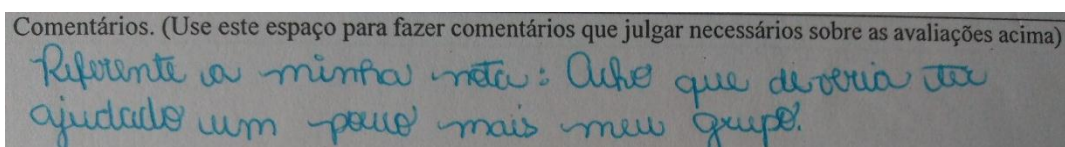 Comentários. (Use este espaço para fazer comentários que julgar necessários sobre as avaliações acima)
Referente a minha nota: Acho que deveria ter
ajudado um pouco mais meu grupo.